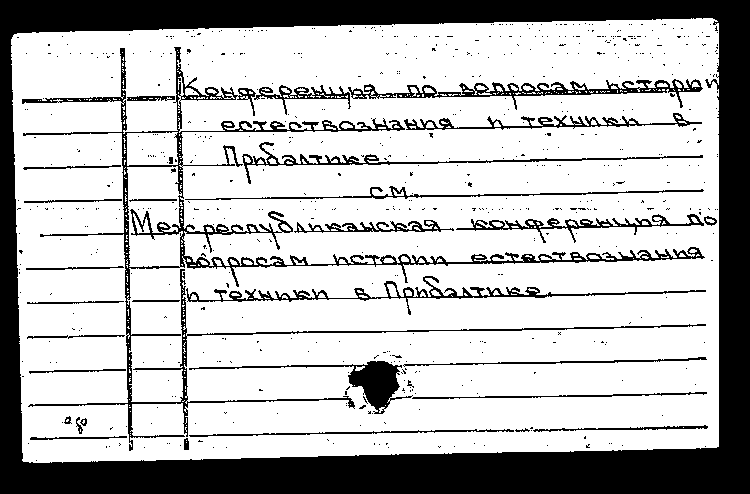 Конференция по вопросам истории
естествознания и техники в
Прибалтике.
см.
Межреспубликанская конференция по
вопросам истории естествознания
и техники в Прибалтике.